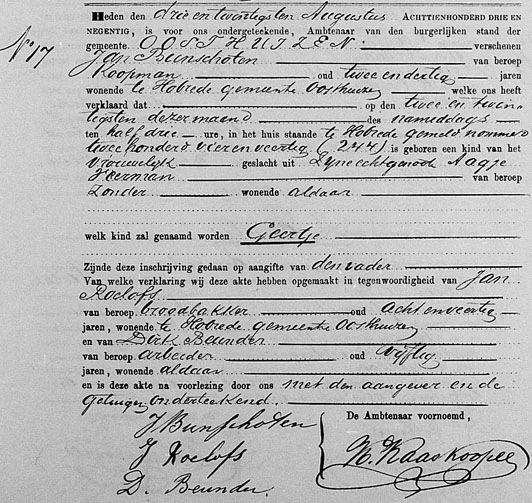 Nº 17
Heden den drie en twintigsten Augustus ACHTTIENHONDERD DRIE EN
NEGENTIG, is voor ons ondergeteekende, Ambtenaar van den burgerlijken stand der
gemeente OOSTHUIZEN verschenen
Jan Bunschoten van beroep
Koopman oud twee en dertig jaren
wonende te Hobrede gemeente Oosthuizen welke ons heeft
verklaard dat op den twee en twin
tigsten dezer maand des namiddags
ten half drie ure, in het huis staande te Hobrede gemeld nommer
twee honderd vier en veertig (244) is geboren een kind van het
vrouwelijk geslacht uit Zijne echtgenoote Aagje
Keerman van beroep
Zonder wonende aldaar
welk kind zal genaamd worden Geertje
Zijnde deze inschrijving gedaan op aangifte van den vader
Van welke verklaring wij deze akte hebben opgemaakt in tegenwoordigheid van Jan
Roelofs
van beroep broodbakker oud acht en veertig
jaren, wonende te Hobrede gemeente Oosthuizen
en van Dirk Beunder
van beroep arbeider oud vijftig
jaren, wonende aldaar
en is deze akte na voorlezing door ons met den aangever en de
getuigen onderteekend.
J Bunschoten
De Ambtenaar voornoemd,
J Roelofs
W. Kaaskooper
D. Beunder.